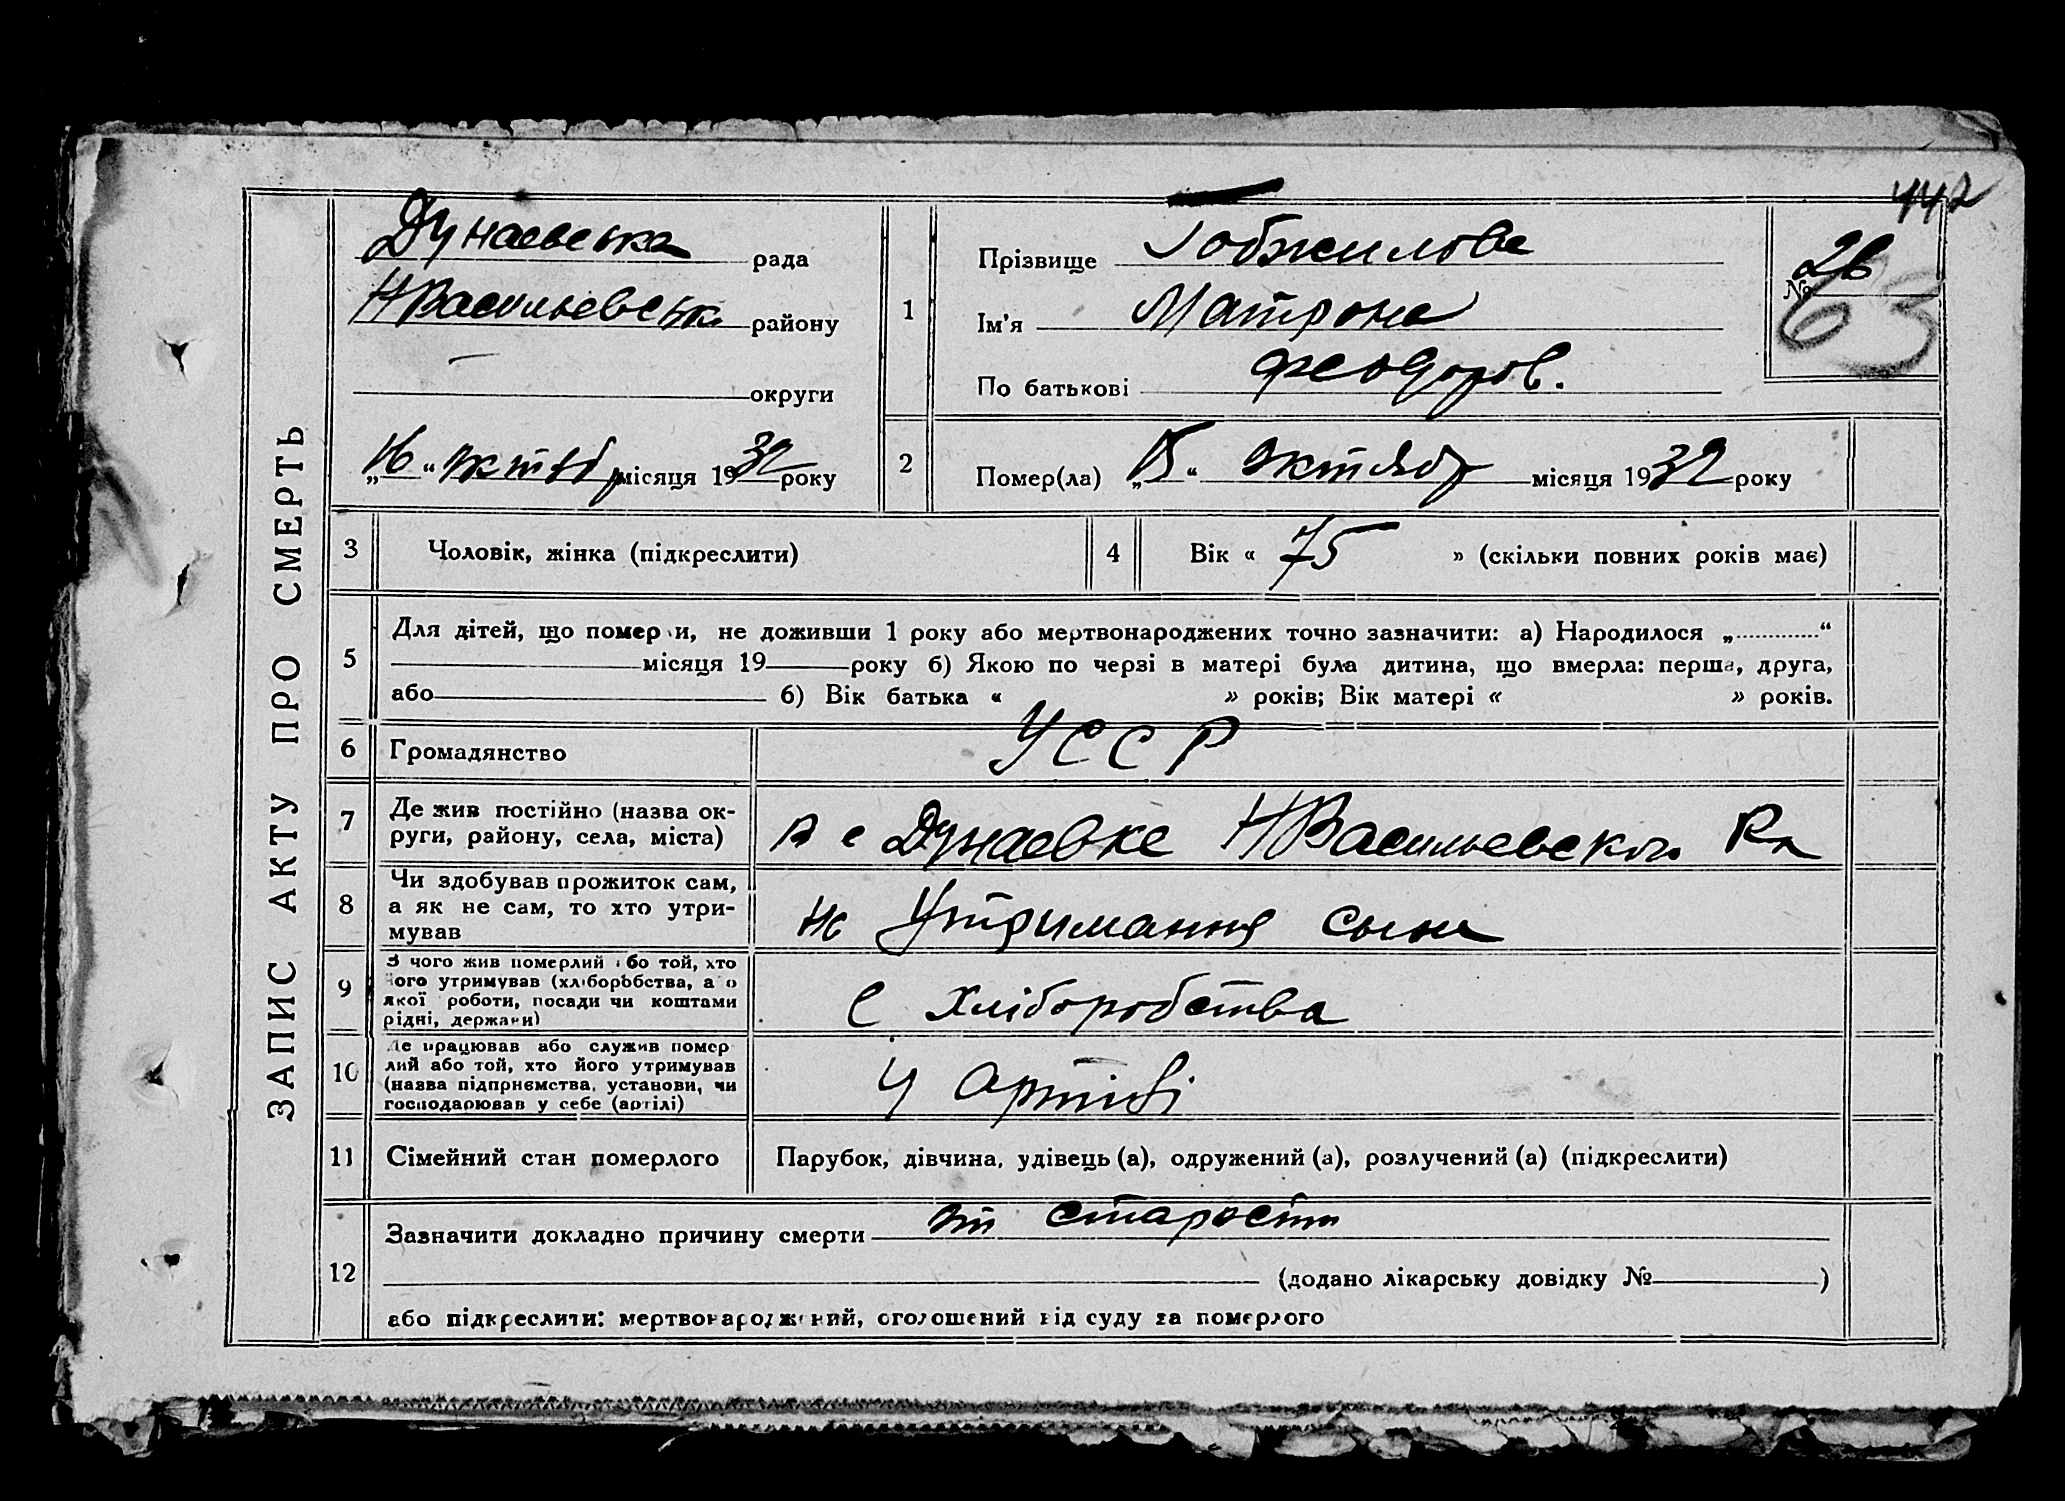 442
ЗАПИС АКТУ ПРО СМЕРТЬ
Дунаевська рада
НВасильевськ району
округи
„16“ октяб місяця 1932 року
1
Прізвище Гобжилова
Ім'я Матрона
По батькові Феодоров.
№ 26
63
2
Помер(ла) „15“ октябр місяця 1932 року
3 Чоловік, жінка (підкреслити)
4 Вік « 75 » (скільки повних років має)
5
Для дітей, що померли, не доживши 1 року або мертвонароджених точно зазначити: а) Народилося „ “
місяця 19 року б) Якою по черзі в матері була дитина, що вмерла: перша, друга,
або б) Вік батька « » років; Вік матері « » років.
6 Громадянство УССР
7
Де жив постійно (назва ок-
руги, району, села, міста)
в с Дунаевке НВасильевского Рн
8
Чи здобував прожиток сам,
а як не сам, то хто утри-
мував
на Утримання сына
9
З чого жив померлий або той, хто
його утримував (хліборобства, а о
якої роботи, посади чи коштами
рідні, держави)
С хліборобства
10
Де працював або служив помер
лий або той, хто його утримував
(назва підприємства, установи, чи
господарював у себе (артілі)
У артілі
11 Сімейний стан померлого Парубок, дівчина, удівець (а), одружений (а), розлучений (а) (підкреслити)
12
Зазначити докладно причину смерти от старости
(додано лікарську довідку № )
або підкреслити: мертвонароджений, оголошений від суду за померлого